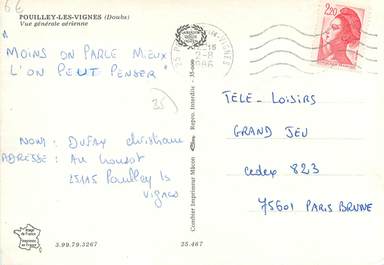 6€
POUILLEY-LES-VIGNES (Doubs)
Vue générale aérienne
" MOINS ON PARLE MIEUX
L'ON PEUT PENSER "
35
NOM : DUFAY christiane
ADRESSE : AU
25115 Pouilley ls
Vignes
3.99.79.3267
25.467
Combier Imprimeur Mâcon
Repro. Interdite - 35.000
25 P
-VIGNES
2,20
TELE - LOISIRS
GRAND JEU
Cedex 823
75601 PARIS BRUNE